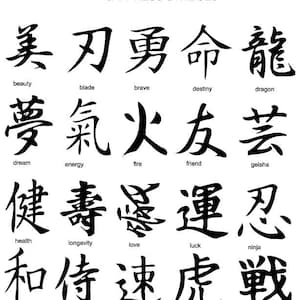 美 刃 勇 命 龍
beauty blade brave destiny dragon
夢 氣 火 友 芸
dream energy fire friend geisha
健 壽 愛 運 忍
health longevity love luck ninja
和 侍 速 虎 戦